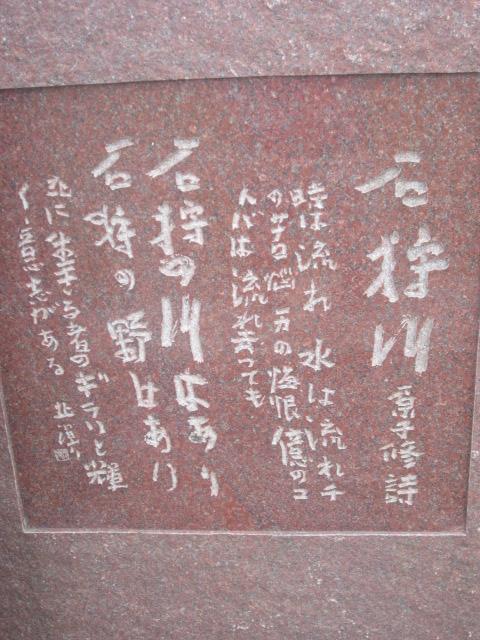 石狩川 原子修詩
時は流れ 水は流れ千
の苦悩 万の悔恨 億のコ
トバは流れ去っても
石狩の川はあり
石狩の野はあり
北に生きる者のギラリと輝
く意志がある